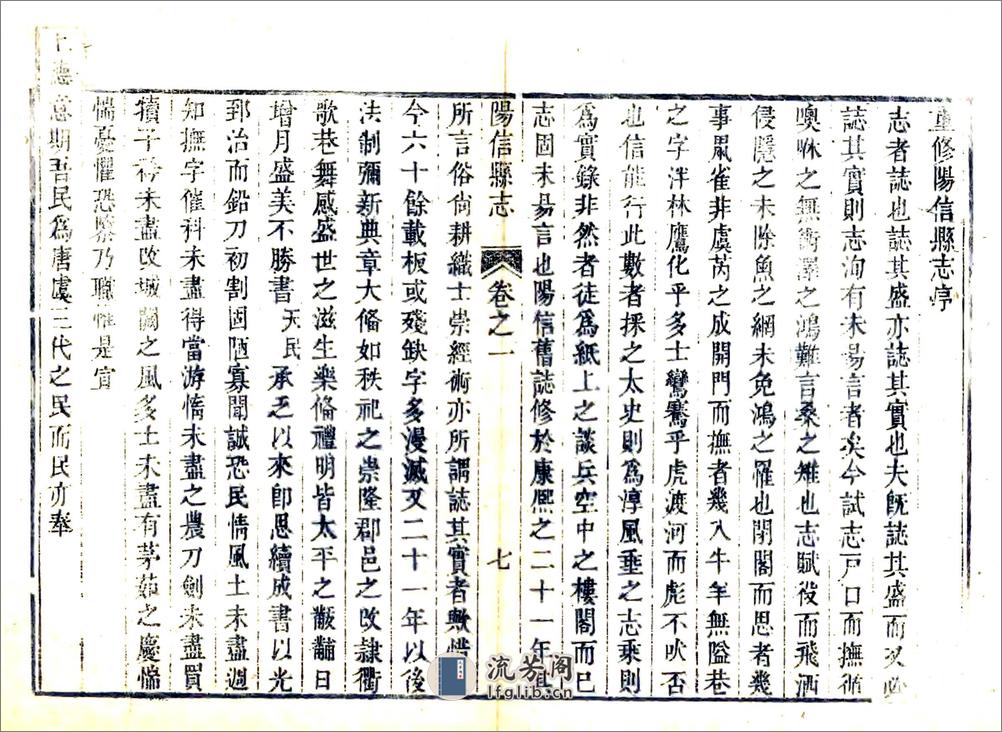 重修陽信縣志序
志者誌也誌其盛亦誌其實也夫旣誌其盛而又必
誌其實則志洵有未易言者矣今試志戸口而撫循
噢咻之無術澤之鴻難言桑之雉也志賦役而飛洒
侵隱之未除魚之網未免鴻之罹也閉閣而思者幾
事鼠雀非虞芮之成開門而撫者幾入牛羊無隘巷
之字泮林鷹化乎多士鸞騫乎虎渡河而彪不吠否
也信能行此數者採之太史則爲淳風垂之志乘則
爲實錄非然者徒爲紙上之談兵空中之樓閣而已
志固未易言也陽信舊誌修於康熙之二十一年
陽信縣志 卷之一 七
所言俗尙耕織士崇經術亦所謂誌其實者歟惜
今六十餘載板或殘缺字多漫滅又二十一年以後
法制彌新典章大備如秩祀之崇隆郡邑之改隷衢
歌巷舞咸盛世之滋生樂備禮明皆太平之黻黼日
增月盛美不勝書天民承乏以來卽思續成書以光
郅治而鉛刀初割固陋寡聞誠恐民情風土未盡週
知撫字催科未盡得當游惰未盡之農刀劍未盡買
犢子衿未盡改城闕之風多士未盡有茅茹之慶惴
惴憂懼恐瘝乃職惟是宣
上德意期吾民爲唐虞三代之民而民亦奉
流芳阁
lfglib.cn